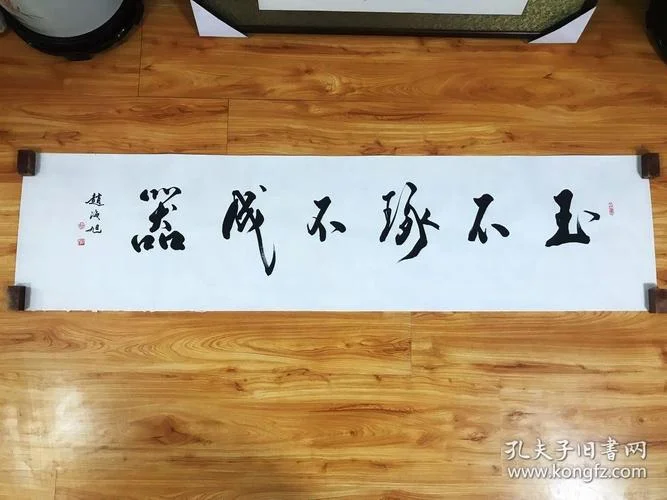 玉不琢不成器
孔夫子旧书网
www.kongfz.com